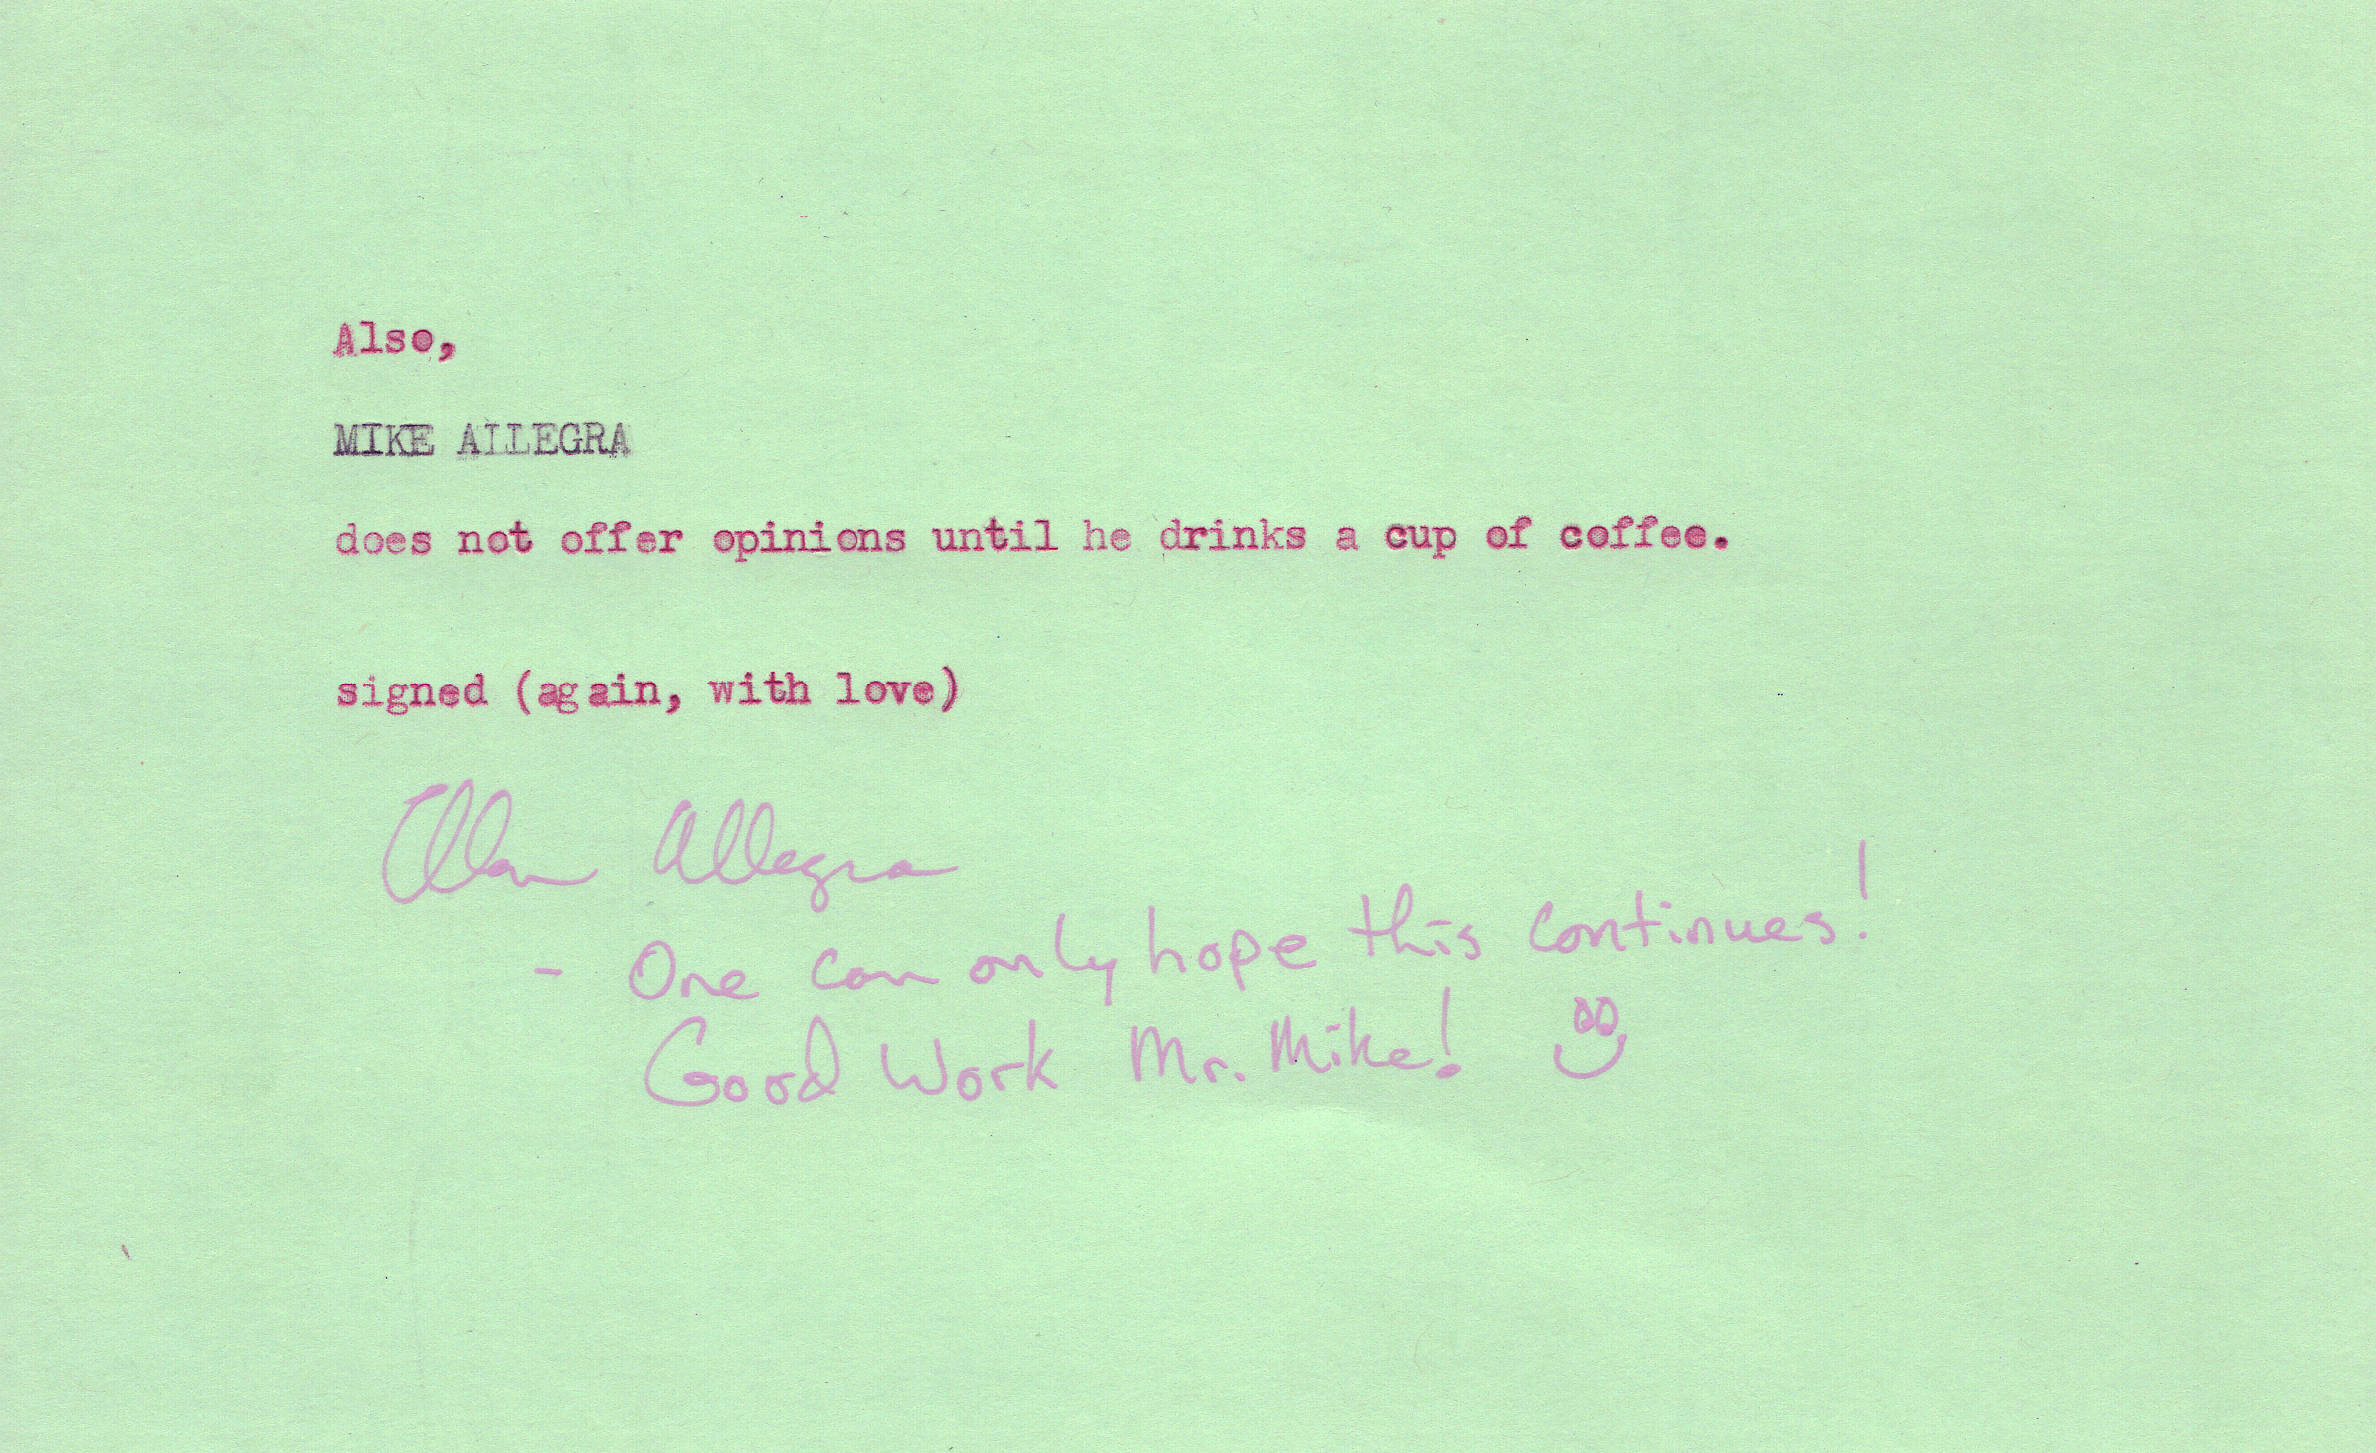 Also,
MIKE ALLEGRA
does not offer opinions until he drinks a cup of coffee.
signed (again, with love)
Allegra
- One can only hope this continues!
Good Work Mr. Mike!